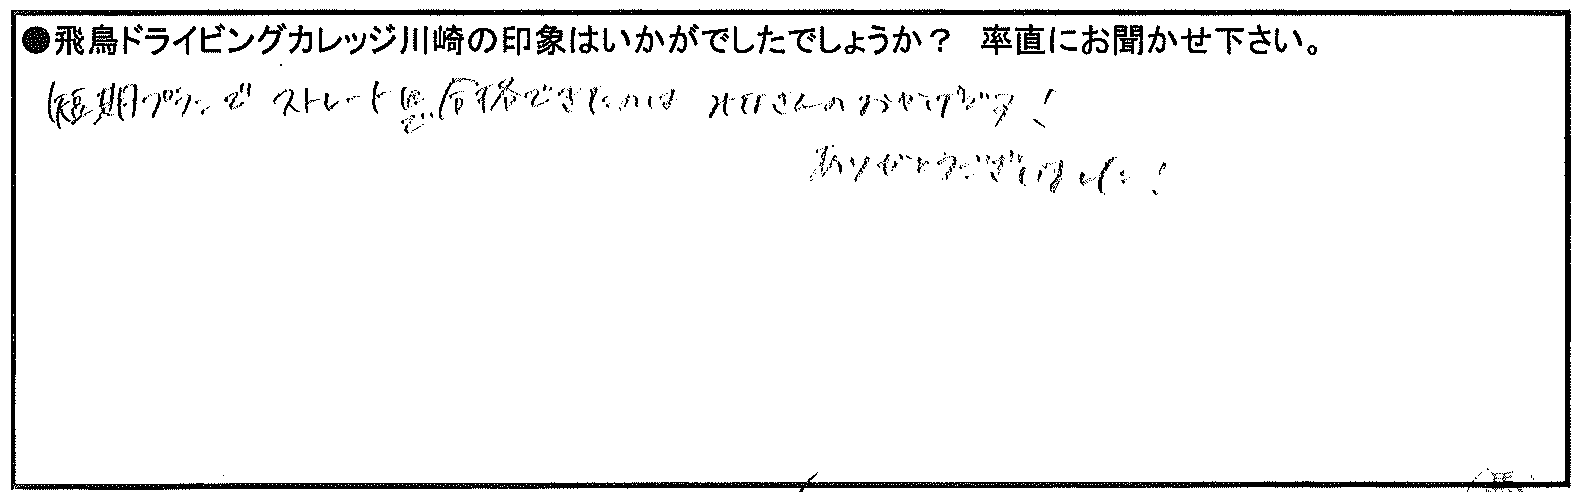 ●飛鳥ドライビングカレッジ川崎の印象はいかがでしたでしょうか？ 率直にお聞かせ下さい。
短期プランで ストレート 合格できたのは さんのおかげです！
ありがとうございました！